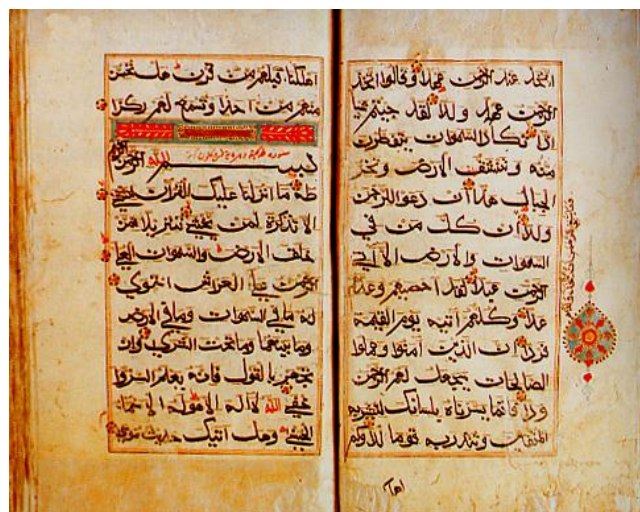 اتخذ عند الرحمن عهدا وقالوا اتخذ
الرحمن ولدا لقد جيتم شيا
ادا تكاد السموات يتفطرن
منه وتنشق الارض وتخر
الجبال هدا ان دعو للرحمن
ولدا ان كل من في
السموات والارض الا اتي
الرحمن عبدا لقد احصيهم وعدهم
عدا وكلهم اتيه يوم القيمة
فردا ان الذين امنوا وعملوا
الصالحات سيجعل لهم الرحمن
ودا فانما يسرناه بلسانك لتبشر به
المتقين وتنذر به قوما لدا وكم
اهلكنا قبلهم من قرن هل تحس
منهم من احد او تسمع لهم ركزا
سورة طه
بسم الله الرحمن الرحيم
طه ما انزلنا عليك القران لتشقي
الا تذكرة لمن يخشي تنزيلا ممن
خلق الارض والسموات العلي
الرحمن علي العرش استوي
له ما في السموات وما في الارض
وما بينهما وما تحت الثري وان
تجهر بالقول فانه يعلم السر وا
خفي الله لا اله الا هو له الاسماء
الحسني وهل اتيك حديث موسي